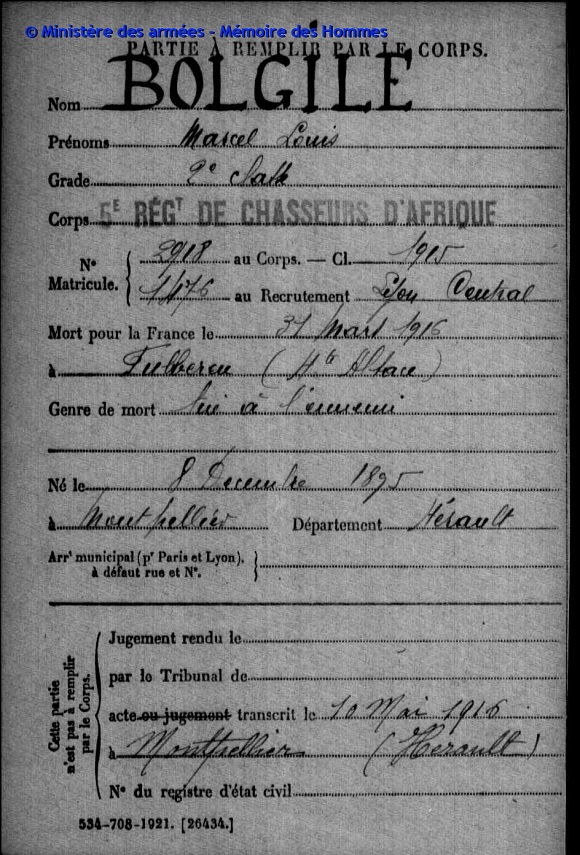 © Ministère des armées - Mémoire des Hommes
PARTIE À REMPLIR PAR LE CORPS.
Nom BOLGILE
Prénoms Marcel Louis
Grade 2e classe
Corps 5E RÉGT DE CHASSEURS D'AFRIQUE
No 2918 au Corps. — Cl. 1915
Matricule. 1476 au Recrutement Lyon Central
Mort pour la France le 31 Mars 1916
à (Hte Alsace)
Genre de mort tué à l'ennemi
Né le 8 Decembre 1895
à Montpellier Département Hérault
Arrt municipal (pr Paris et Lyon),
à défaut rue et No.
Cette partie
n'est pas à remplir
par le Corps.
Jugement rendu le
par le Tribunal de
acte ou jugement transcrit le 10 Mai 1916
à Montpellier (Hérault)
No du registre d'état civil
534-708-1921. [26434.]